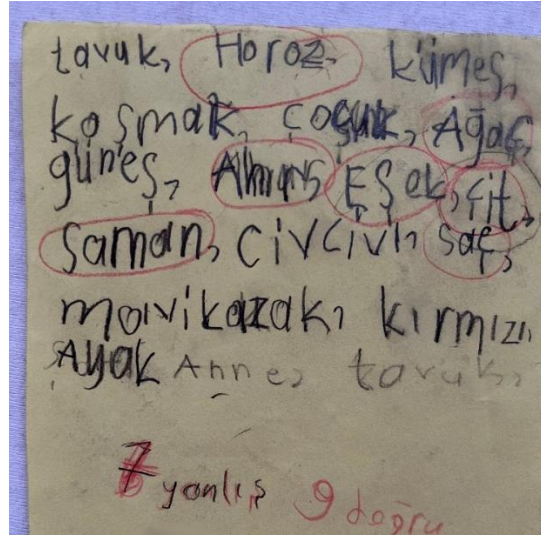 tavuk, Horoz, kümeş,
koşmak, çoçuk, Ağaç,
güneş, Eşek, çit,
saman, civciv, saç,
mavikazak, kırmızı,
Ayak Anne, tavuk,
7 yanlış 9 doğru